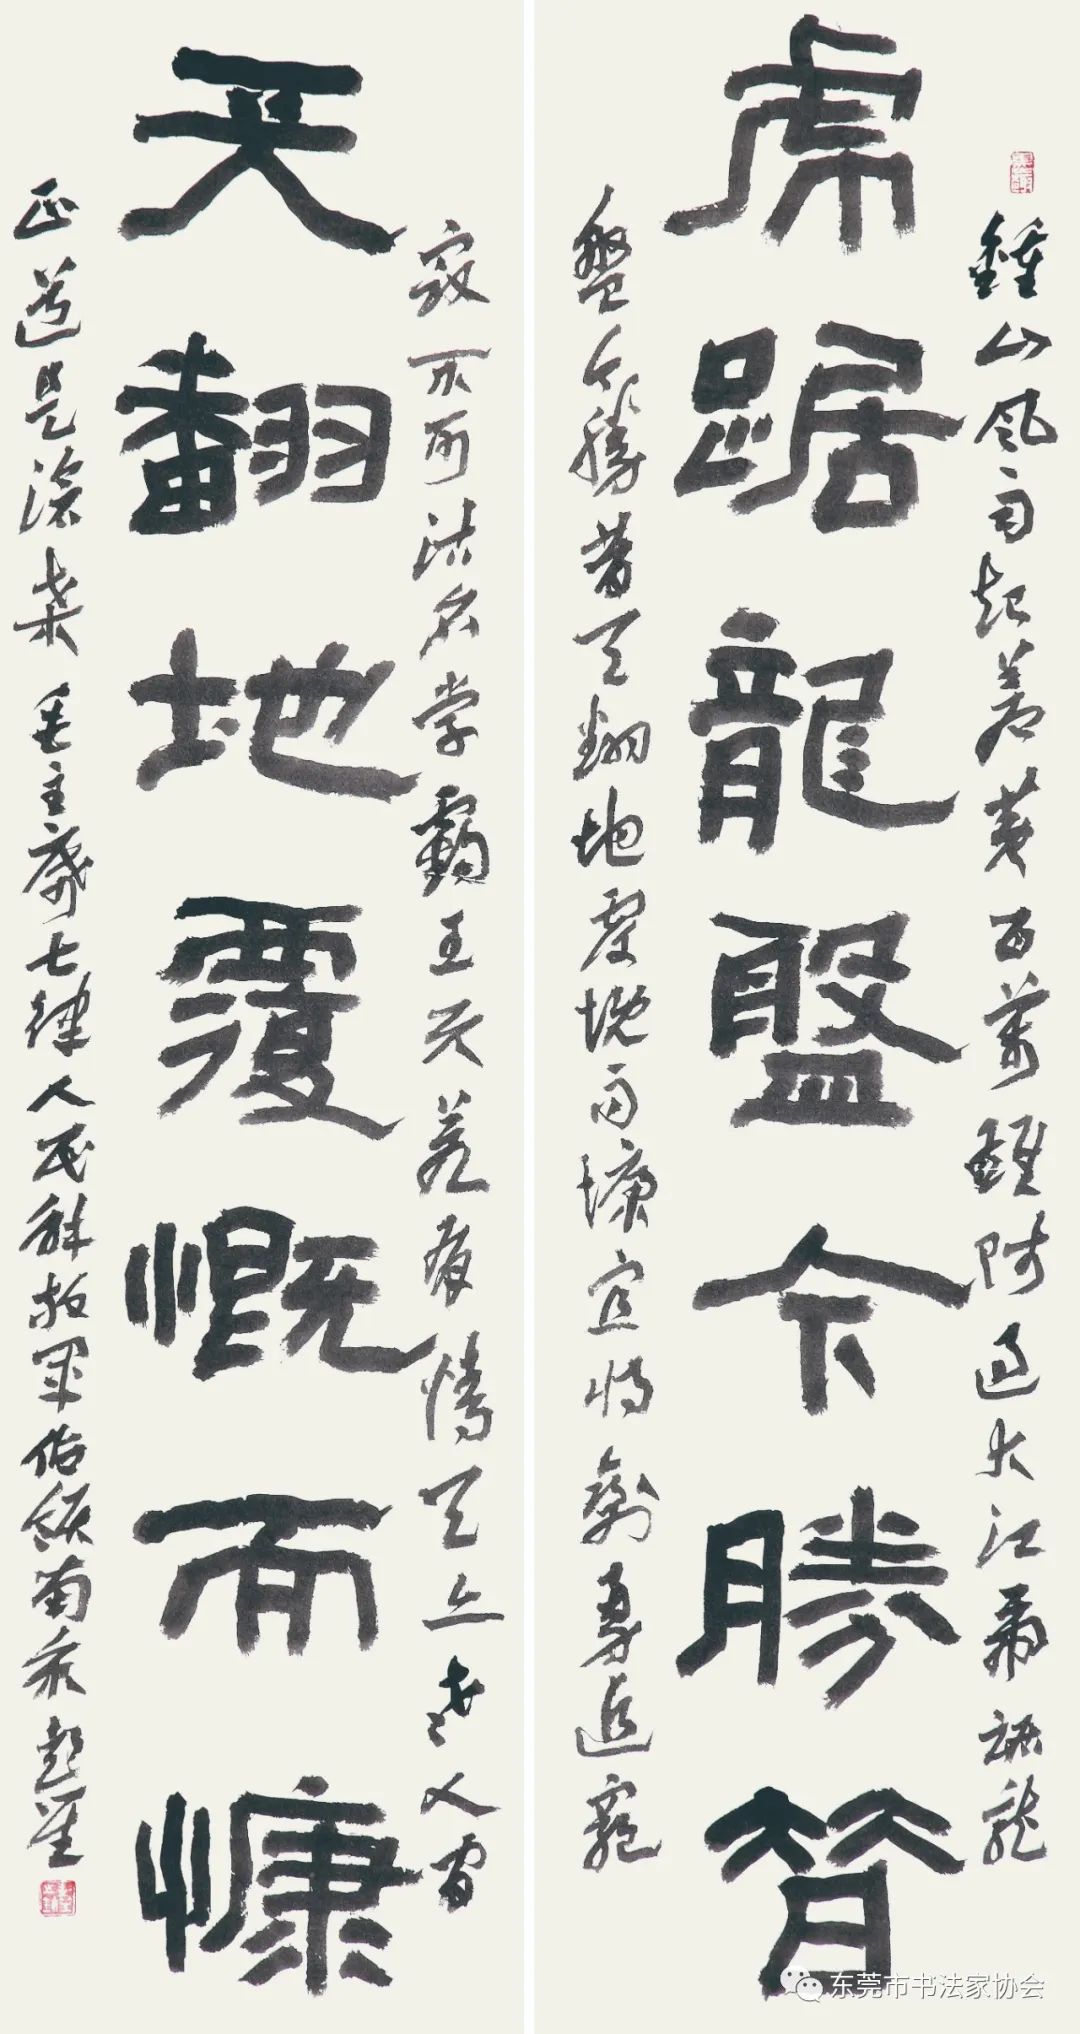 虎踞龍盤今勝昔
鍾山風雨起蒼黃百萬雄師過大江虎踞龍
盤今勝昔天翻地覆慨而慷宜將剩勇追窮
天翻地覆慨而慷
寇不可沽名學霸王天若有情天亦老人間
正道是滄桑 毛主席七律人民解放軍佔領南京
东莞市书法家协会